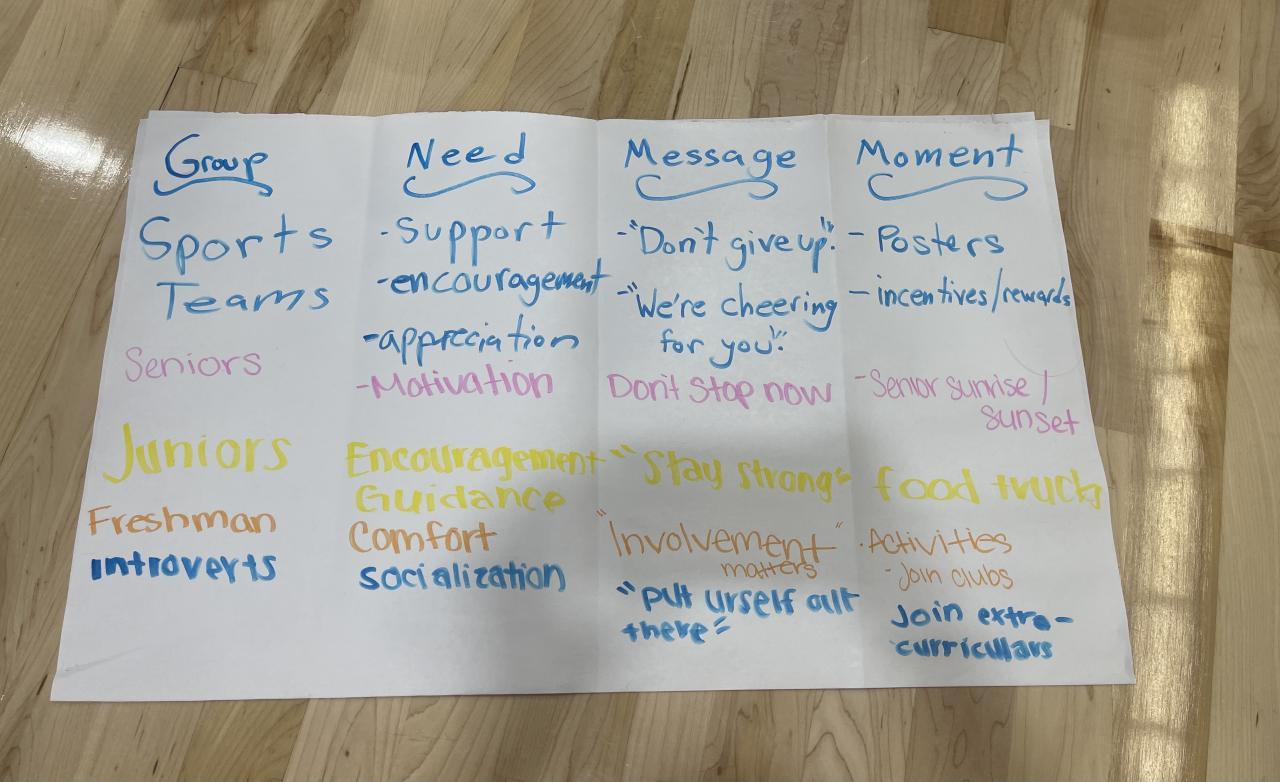 Group Need Message Moment
Sports Teams
-Support
-encouragement
-appreciation
-"Don't give up".
-"We're cheering
for you".
- Posters
- incentives/rewards
Seniors
-Motivation
Don't Stop now
-Senior sunrise/
sunset
Juniors
Encouragement
Guidance
"Stay strong"
food truck
Freshman
Comfort
"Involvement"
matters
·Activities
-Join clubs
introverts
socialization
"put urself out
there"
Join extra-
curriculars